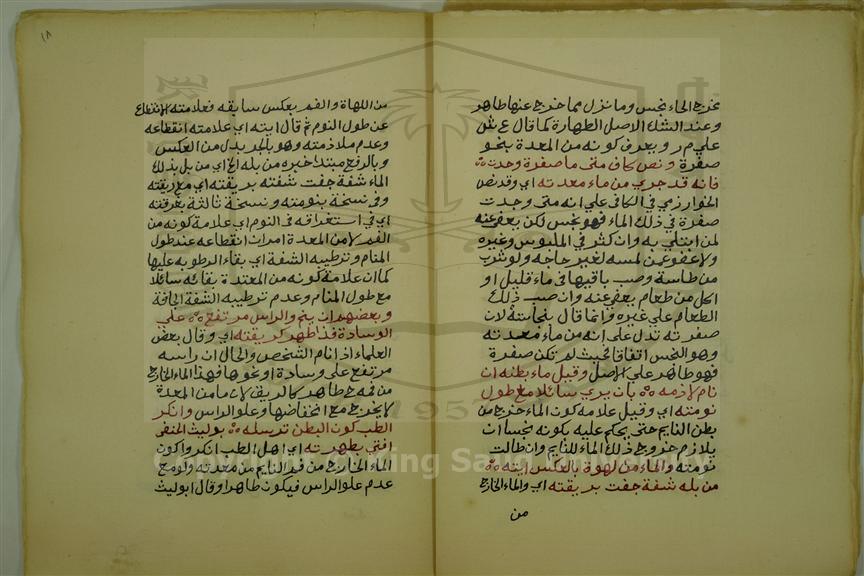 يخرج الماء نجس وما نزل مما خرج عنها طاهر
وعند الشك الاصل الطهارة كما قال ع ش
علي م ر ويعرف كونه من المعدة بنحو
صفرة ونص كاف متى ما صفرة وجدت
فانه قد جرى من ماء معدته اي وقد نص
الخوارزمي في الكافي على انه متى وجدت
صفرة في ذلك الماء فهو نجس لكن يعفى عنه
لمن ابتلي به وان كثر في الملبوس وغيره
ولا عفو عمن لمسه لغير حاجه ولو شرب
من طاسة وصب باقيها في ماء قليل او
اكل من طعام يعفى عنه وان صب ذلك
الطعام على غيره وانما قال بنجاسته لان
صفرته تدل على انه من ماء معدته
وهو النجس اتفاقا بحيث لم تكن صفرة
فهو طاهر على الاصل وقيل ماء بطنه ان
نام لازمه بان يرى سائلا مع طول
نومته اي وقيل علامة كون الماء خرج من
بطن النايم حتى يحكم عليه بكونه نجسا ان
يلازم خروج ذلك الماء للنايم وان طالت
نومته والماء من لهوة بالعكس ايته
من بله شفة جفت بريقته اي والماء الخارج
من
١٨
من اللهاة والفم بعكس سابقه فعلامته الانقطاع
عن طول النوم ثم قال ايته اي علامته انقطاعه
وعدم ملازمته وهو بالجر بدل من العكس
وبالرفع مبتدا خبره من بله الخ اي من بل بذلك
الماء شفة جفت شفته بريقته اي مع ريقته
وفي نسخة بنومته ونسخة ثالثة بغرقته
اي في استغراقه في النوم اي علامة كونه من
الفم لا من المعدة امران انقطاعه عند طول
المنام وترطيبه الشفة اي بقاء الرطوبه عليها
كما ان علامة كونه من المعدة بقائه سائلا
مع طول المنام وعدم ترطيبه الشفة الجافة
وبعضهم ان ينم والراس مرتفع على
الوسادة فذا طهر كريقته اي وقال بعض
العلماء اذا نام الشخص والحال ان راسه
مرتفع على وسادة او نحوها فهذا الماء الخارج
من فمه ح طاهر كالريق لان ما من المعدة
لا يخرج مع انخفاضها وعلو الراس وانكر
الطب كون البطن ترسله بوليث الحنفي
افتى بطهرته اي اهل الطب انكروا كون
الماء الخارج من فم النايم من معدته ولو مع
عدم علو الراس فيكون طاهرا وقال ابو ليث